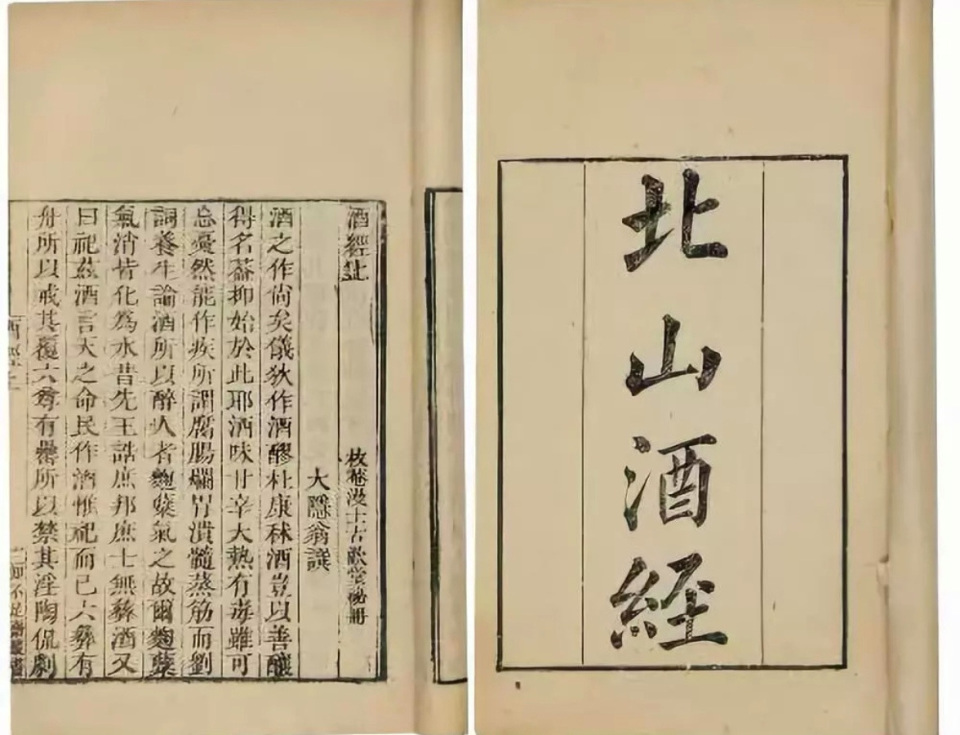 北山酒經
酒經上
枚菴漫士古歡堂秘冊
大隱翁譔
酒之作尚矣儀狄作酒醪杜康秫酒豈以善釀
得名蓋抑始於此耶酒味甘辛大熱有毒雖可
忘憂然能作疾所謂腐腸爛胃潰髓蒸筋而劉
詞養生論酒所以醉人者麴糱氣之故爾麴糱
氣消皆化為水昔先王誥庶邦庶士無彝酒又
曰祀茲酒言天之命民作酒惟祀而已六彝有
舟所以戒其覆六尊有罍所以禁其淫陶侃劇
知不足齋叢書